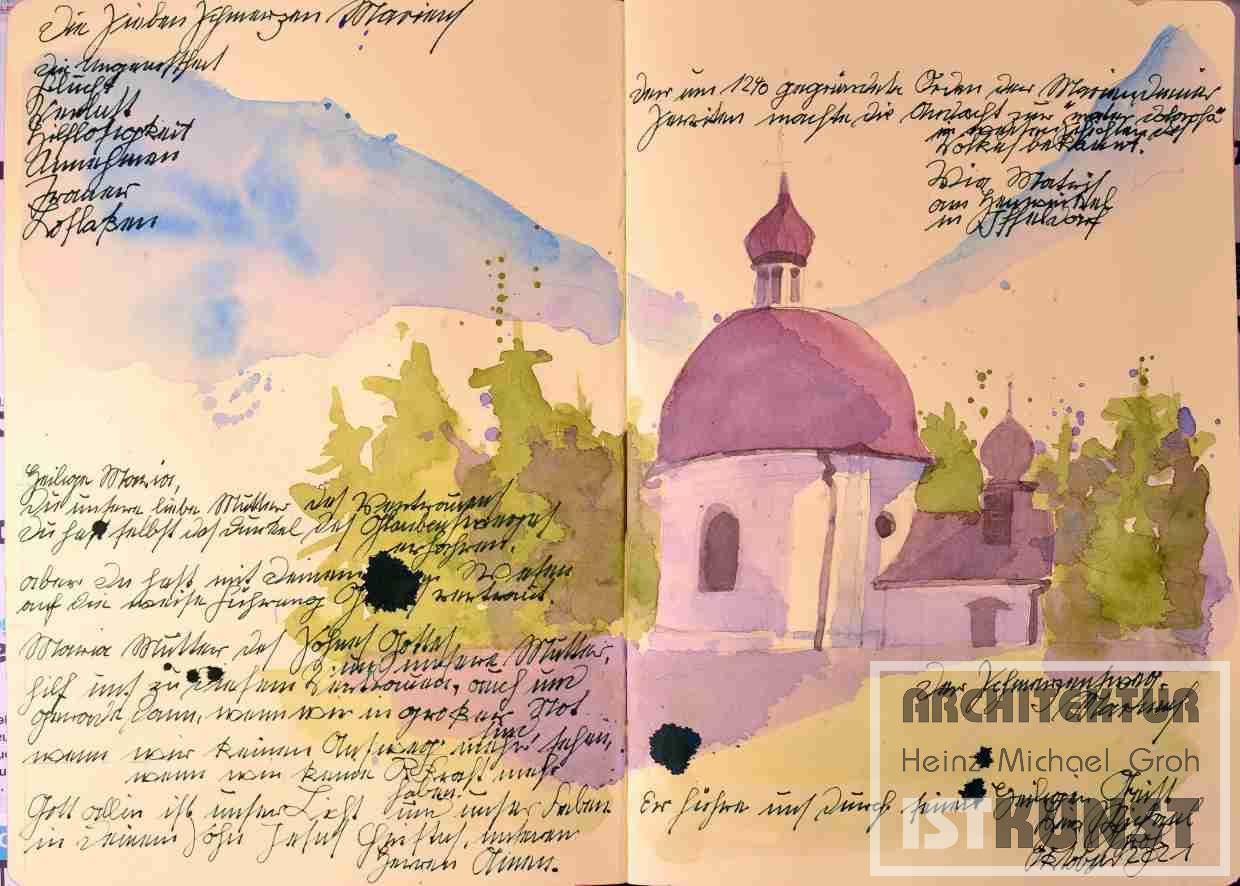 Die Sieben Schmerzen Mariens
Die Ungewißheit
Flucht
Verlust
Hilflosigkeit
Annehmen
Trauer
Loslaßen
Heilige Maria,
Du unsere liebe Mutter des Vertrauens
Du hast selbst das Dunkel des Glaubensweges
erfahren.
aber Du hast mit Deinem Wesen
auf die weise Führung Vertraut.
Maria Mutter des Sohnes Gottes
und unsere Mutter,
hilf uns zu diesem Vertrauen, auch und
gerade dann, wenn wir in großer Not
sind
wenn wir keinen Ausweg mehr sehen,
wenn wir keine Kraft mehr
haben.
Gott allein ist unser Licht und unser Leben
in Deinem Sohn Jesus Christus, unseren
Herren Amen.
Der um 1240 gegründete Orden der Mariendiener
Serviten machte die Andacht zur "mater dolorosa"
in weiten Schichten des
Volkes bekannt.
Via Matris
am Heuwinkel
in Iffeldorf
Der Schmerzensweg
Mariens
Er führe uns durch seinen Heiligen Geist
Heinz Michael
Groh
Oktober 2021
ARCHITEKTUR
Heinz Michael Groh
IST KUNST